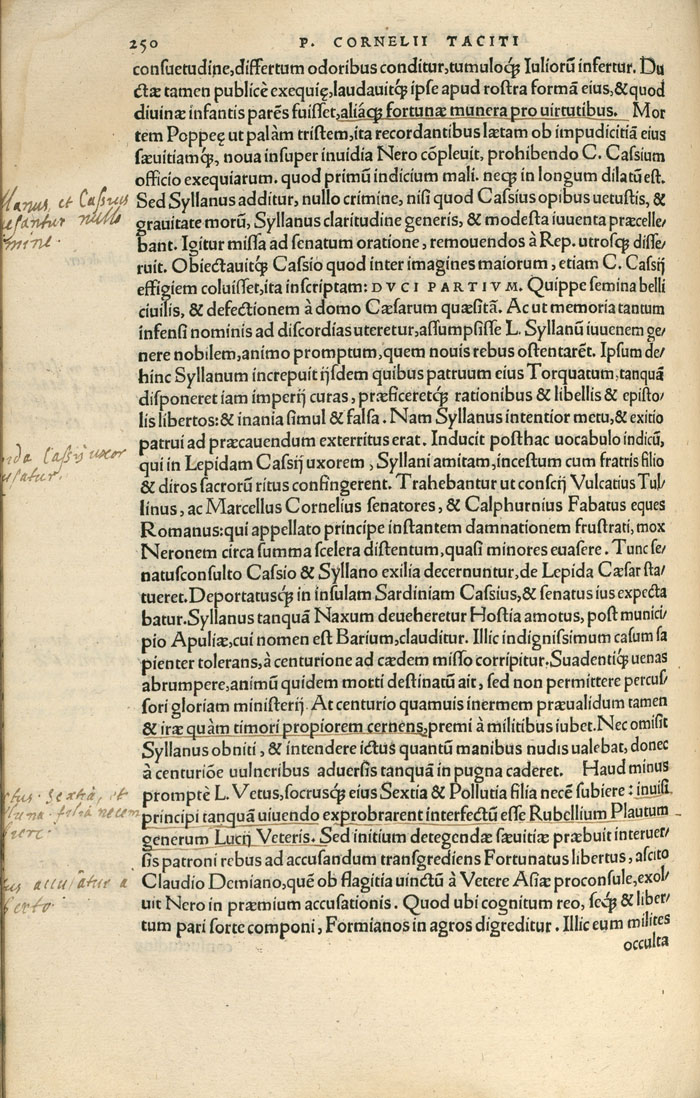 250 P. CORNELII TACITI
consuetudine,differtum odoribus conditur,tumuloq́ꝫ Iuliorū infertur. Du
ctæ tamen publicè exequię,laudauitq́ꝫ ipse apud rostra formā eius,&quod
diuinæ infantis parēs fuisset,aliáq́ꝫ fortunæ munera pro uirtutibus. Mor
tem Poppeę ut palàm tristem,ita recordantibus lætam ob impudicitiā eius
sæuitiamq́ꝫ, noua insuper inuidia Nero cōpleuit, prohibendo C. Cassium
officio exequiarum. quod primū indicium mali. neqꝫ in longum dilatū est.
Sed Syllanus additur, nullo crimine, nisi quod Cassius opibus uetustis, &
grauitate morū, Syllanus claritudine generis, & modesta iuuenta præcelle/
bant. Igitur missa ad senatum oratione, remouendos à Rep. utrosqꝫ disse/
ruit. Obiectauitq́ꝫ Cassio quod inter imagines maiorum, etiam C. Cassij
effigiem coluisset,ita inscriptam: DVCI PARTIVM. Quippe semina belli
ciuilis, & defectionem à domo Cæsarum quæsitā. Ac ut memoria tantum
infensi nominis ad discordias uteretur,assumpsisse L. Syllanū iuuenem ge/
nere nobilem,animo promptum,quem nouis rebus ostentarēt. Ipsum de/
hinc Syllanum increpuit ijsdem quibus patruum eius Torquatum,tanquā
disponeret iam imperij curas, præficeretq́ꝫ rationibus & libellis & episto/
lis libertos:& inania simul & falsa. Nam Syllanus intentior metu,& exitio
patrui ad præcauendum exterritus erat. Inducit posthac uocabulo indicū,
qui in Lepidam Cassij uxorem, Syllani amitam,incestum cum fratris filio
& diros sacrorū ritus confingerent. Trahebantur ut conscij Vulcatius Tul/
linus, ac Marcellus Cornelius senatores, & Calphurnius Fabatus eques
Romanus:qui appellato principe instantem damnationem frustrati, mox
Neronem circa summa scelera distentum,quasi minores euasere. Tunc se/
natusconsulto Cassio & Syllano exilia decernuntur,de Lepida Cæsar sta/
tueret.Deportatusq́ꝫ in insulam Sardiniam Cassius,& senatus ius expecta
batur.Syllanus tanquā Naxum deueheretur Hostia amotus, post munici/
pio Apuliæ,cui nomen est Barium,clauditur. Illic indignissimum casum sa
pienter tolerans,à centurione ad cædem misso corripitur.Suadentiq́ꝫ uenas
abrumpere,animū quidem morti destinatū ait, sed non permittere percus/
sori gloriam ministerij. At centurio quamuis inermem præualidum tamen
& iræ quàm timori propiorem cernens,premi à militibus iubet.Nec omisit
Syllanus obniti, & intendere ictus quantū manibus nudis ualebat, donec
à centuriōe uulneribus aduersis tanquā in pugna caderet. Haud minus
promptè L. Vetus,socrusqꝫ eius Sextia & Pollutia filia necē subiere: inuisi
principi tanquā uiuendo exprobrarent interfectū esse Rubellium Plautum
generum Lucij Veteris. Sed initium detegendæ sæuitiæ præbuit interuer/
sis patroni rebus ad accusandum transgrediens Fortunatus libertus, ascito
Claudio Demiano,quē ob flagitia uinctū à Vetere Asiæ proconsule,exol/
uit Nero in præmium accusationis. Quod ubi cognitum reo, seqꝫ & liber/
tum pari sorte componi, Formianos in agros digreditur. Illic eum milites
occulta
llanus et Cassius
nullo
mine.
ida Cassij uxor
usatur.
Sextia, et
filia necem
iere.
us accusatur a
berto